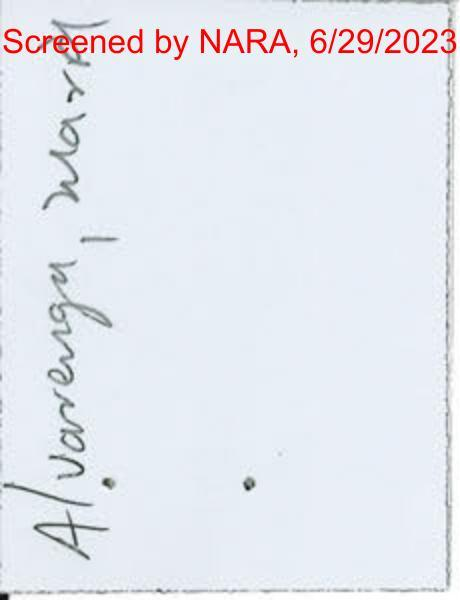 Screened by NARA, 6/29/2023
Alvarenga, Mark